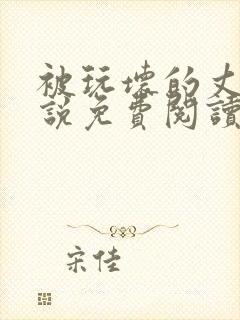 被玩壞的丈
說免費閱讀
宋佳